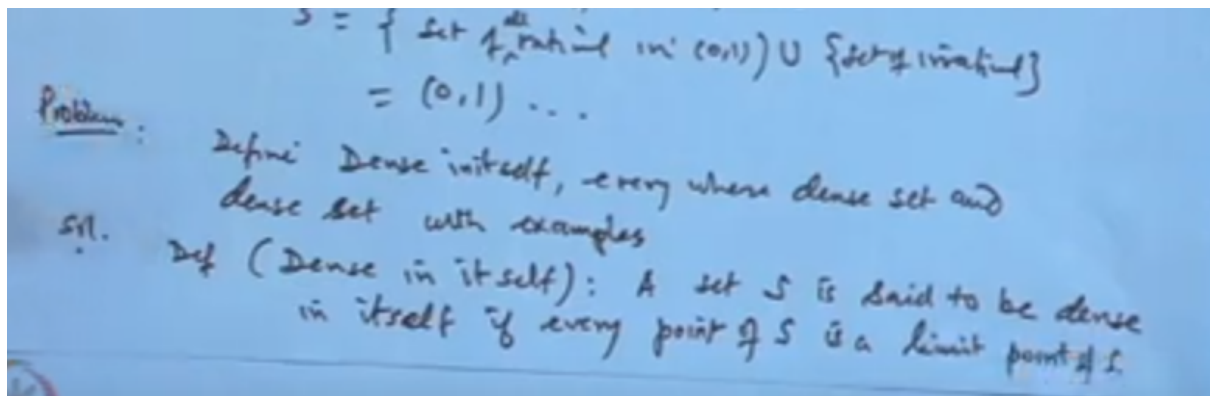 S = { set of all rational in (0,1)) ∪ {set of irrational}
= (0,1) ...
Problem :
Define Dense initself, every where dense set and
dense set with examples
Sol.
Def (Dense in itself): A set S is said to be dense
in itself if every point of S is a limit point of S.